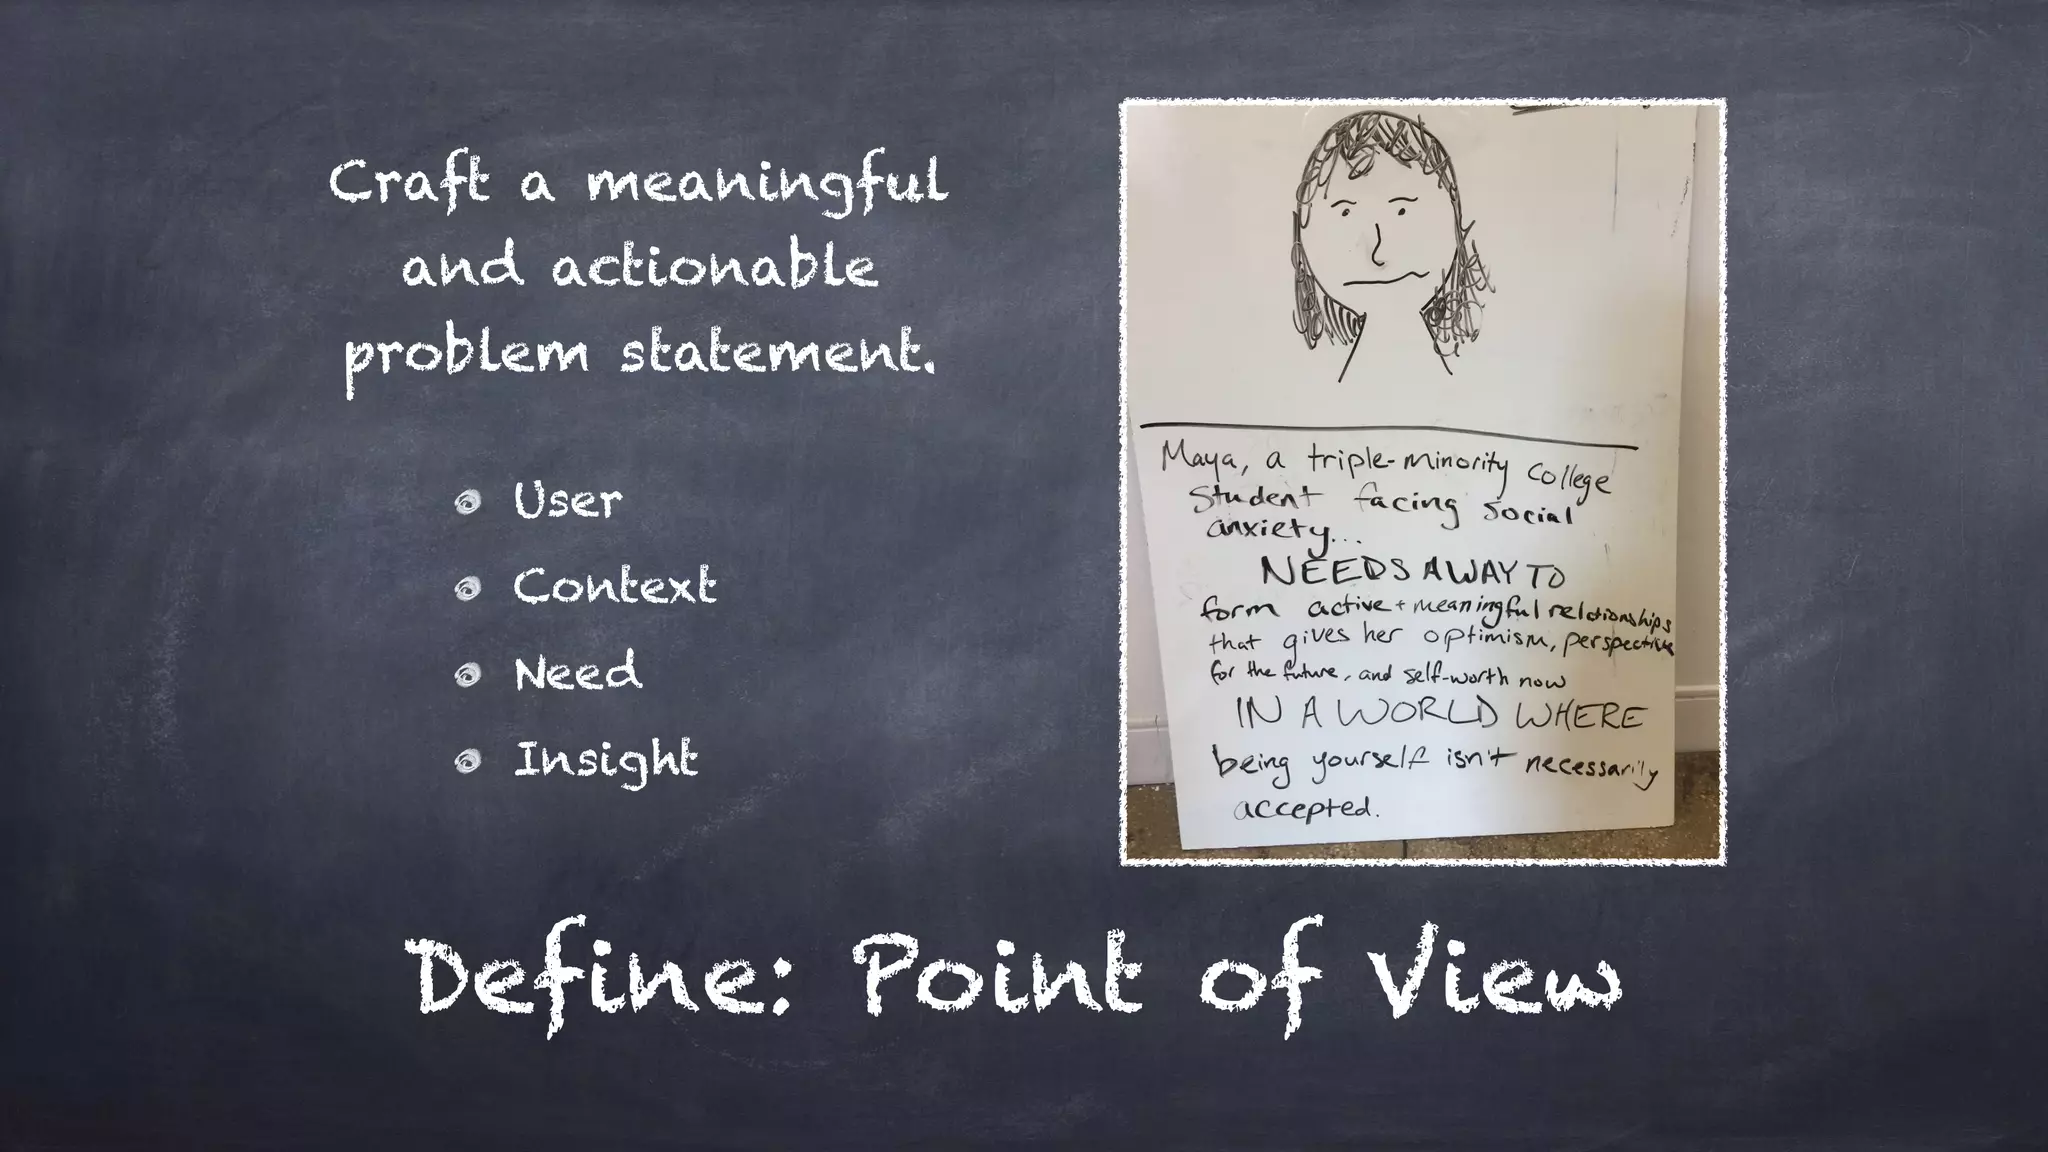 Craft a meaningful
and actionable
problem statement.
User
Context
Need
Insight
Maya, a triple-minority college
student facing social
anxiety...
NEEDS A WAY TO
form active + meaningful relationships
that gives her optimism, perspective
for the future, and self-worth now
IN A WORLD WHERE
being yourself isn't necessarily
accepted.
Define: Point of View